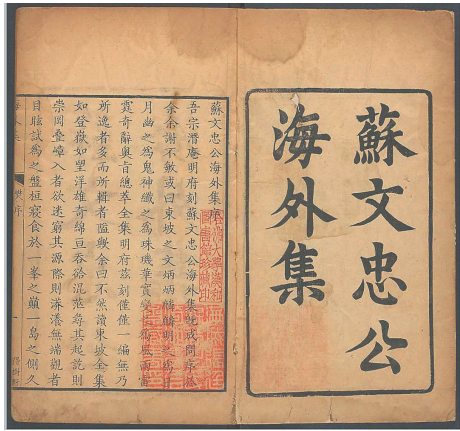 蘇文忠公
海外集
蘇文忠公海外集序
吾宗潛庵明府刻蘇文忠公海外集既成問序於
余余謝不敏或曰東坡之文炳炳麟麟明之為日
月幽之為鬼神纖之為珠璣華實變化為風雨雷
霆奇辭奧旨總萃全集明府茲刻僅僅一編無乃
所逸者多而所輯者隘歟余曰不然讀東坡全集
如登嶽如望洋雄奇綿亘吞欲混茫尋其起訖則
崇岡疊嶂入者欲迷窮其源際則漭湊無端觀者
目眩試為之盤桓寢食於一峯之巔一島之側久
海外集 樊序 一